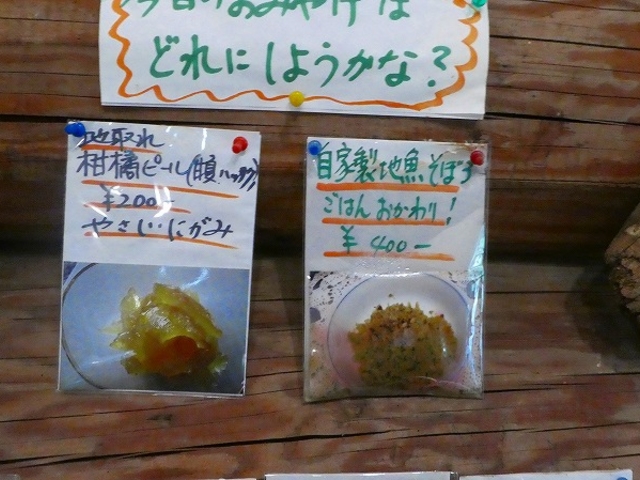 今日のおみやげは
どれにしようかな?
地取れ
柑橘ピール
¥200-
やさしい…にがみ
自家製地魚そぼろ
ごはんおかわり!
¥400-